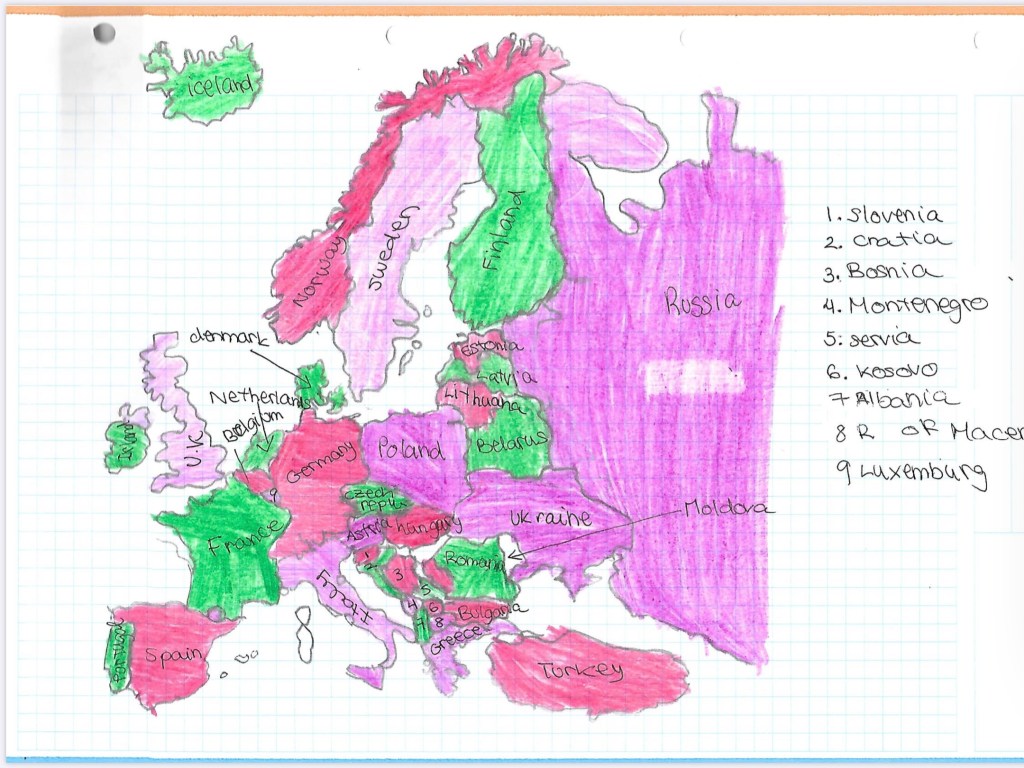 iceland
Norway
Sweden
Finland
Russia
1. Slovenia
2. Cratia
3. Bosnia
4. Montenegro
5. servia
6. Kosovo
7 Albania
8 R of Macer
9 Luxemburg
denmark
Estonia
Latvia
Lithuana
Netherlands
Belgiom
U.K
Germany
Poland
Belarus
9
czech
repu
France
Astria
hungary
Ukraine
Moldova
Romania
1
2
3
4
5
6
7
8
Bulgaria
Greece
Itraly
Portugal
Spain
Turkey